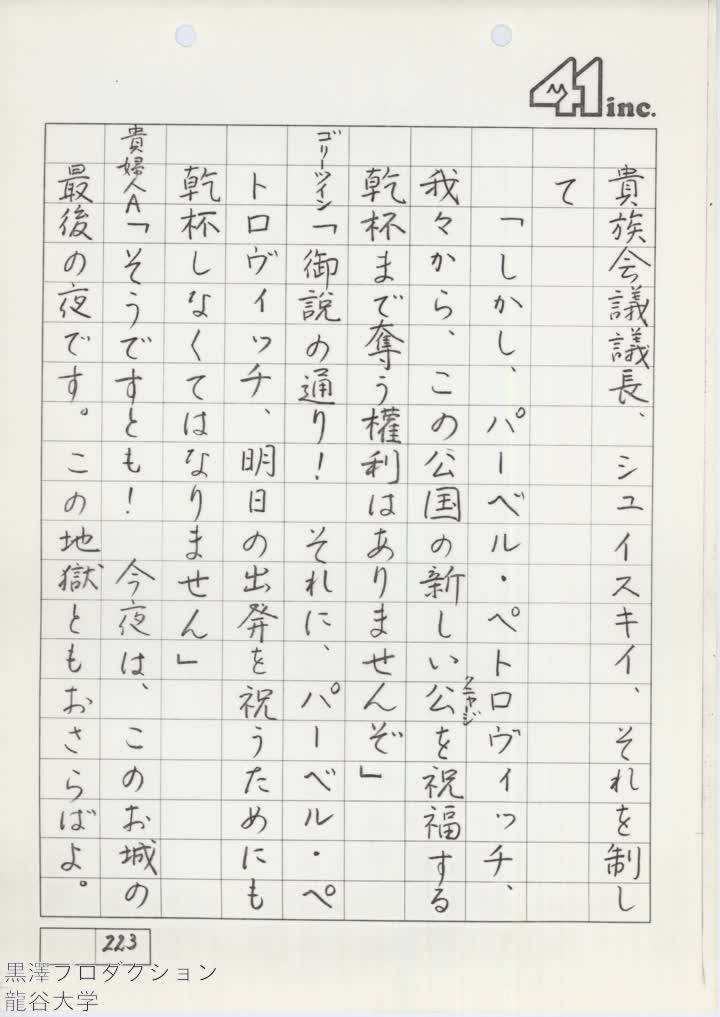 41 inc.
貴族会議議長、シュイスキイ、それを制し
て
「しかし、パーベル・ペトロヴィッチ、
我々から、この公国の新しい公を祝福する
クニャージ
乾杯まで奪う權利はありませんぞ」
ゴリーツィン「御説の通り! それに、パーベル・ペ
トロヴィッチ、明日の出発を祝うためにも
乾杯しなくてはなりません」
貴婦人A「そうですとも! 今夜は、このお城の
最後の夜です。この地獄ともおさらばよ。
223
黒澤プロダクション
龍谷大学